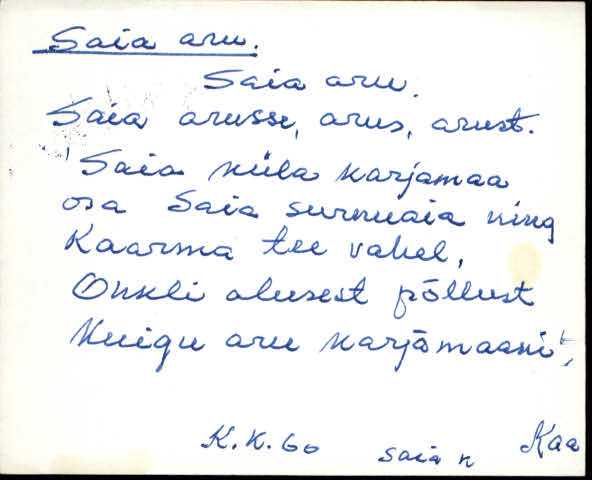 Saia aru.
Saia aru.
Saia arusse, arus, arust.
Saia küla karjamaa
osa Saia surnuaia ning
Kaarma tee vahel,
Onkli alusest põllust
Kuigu aru karjamaani,
K.K.60 Saia k Kaa